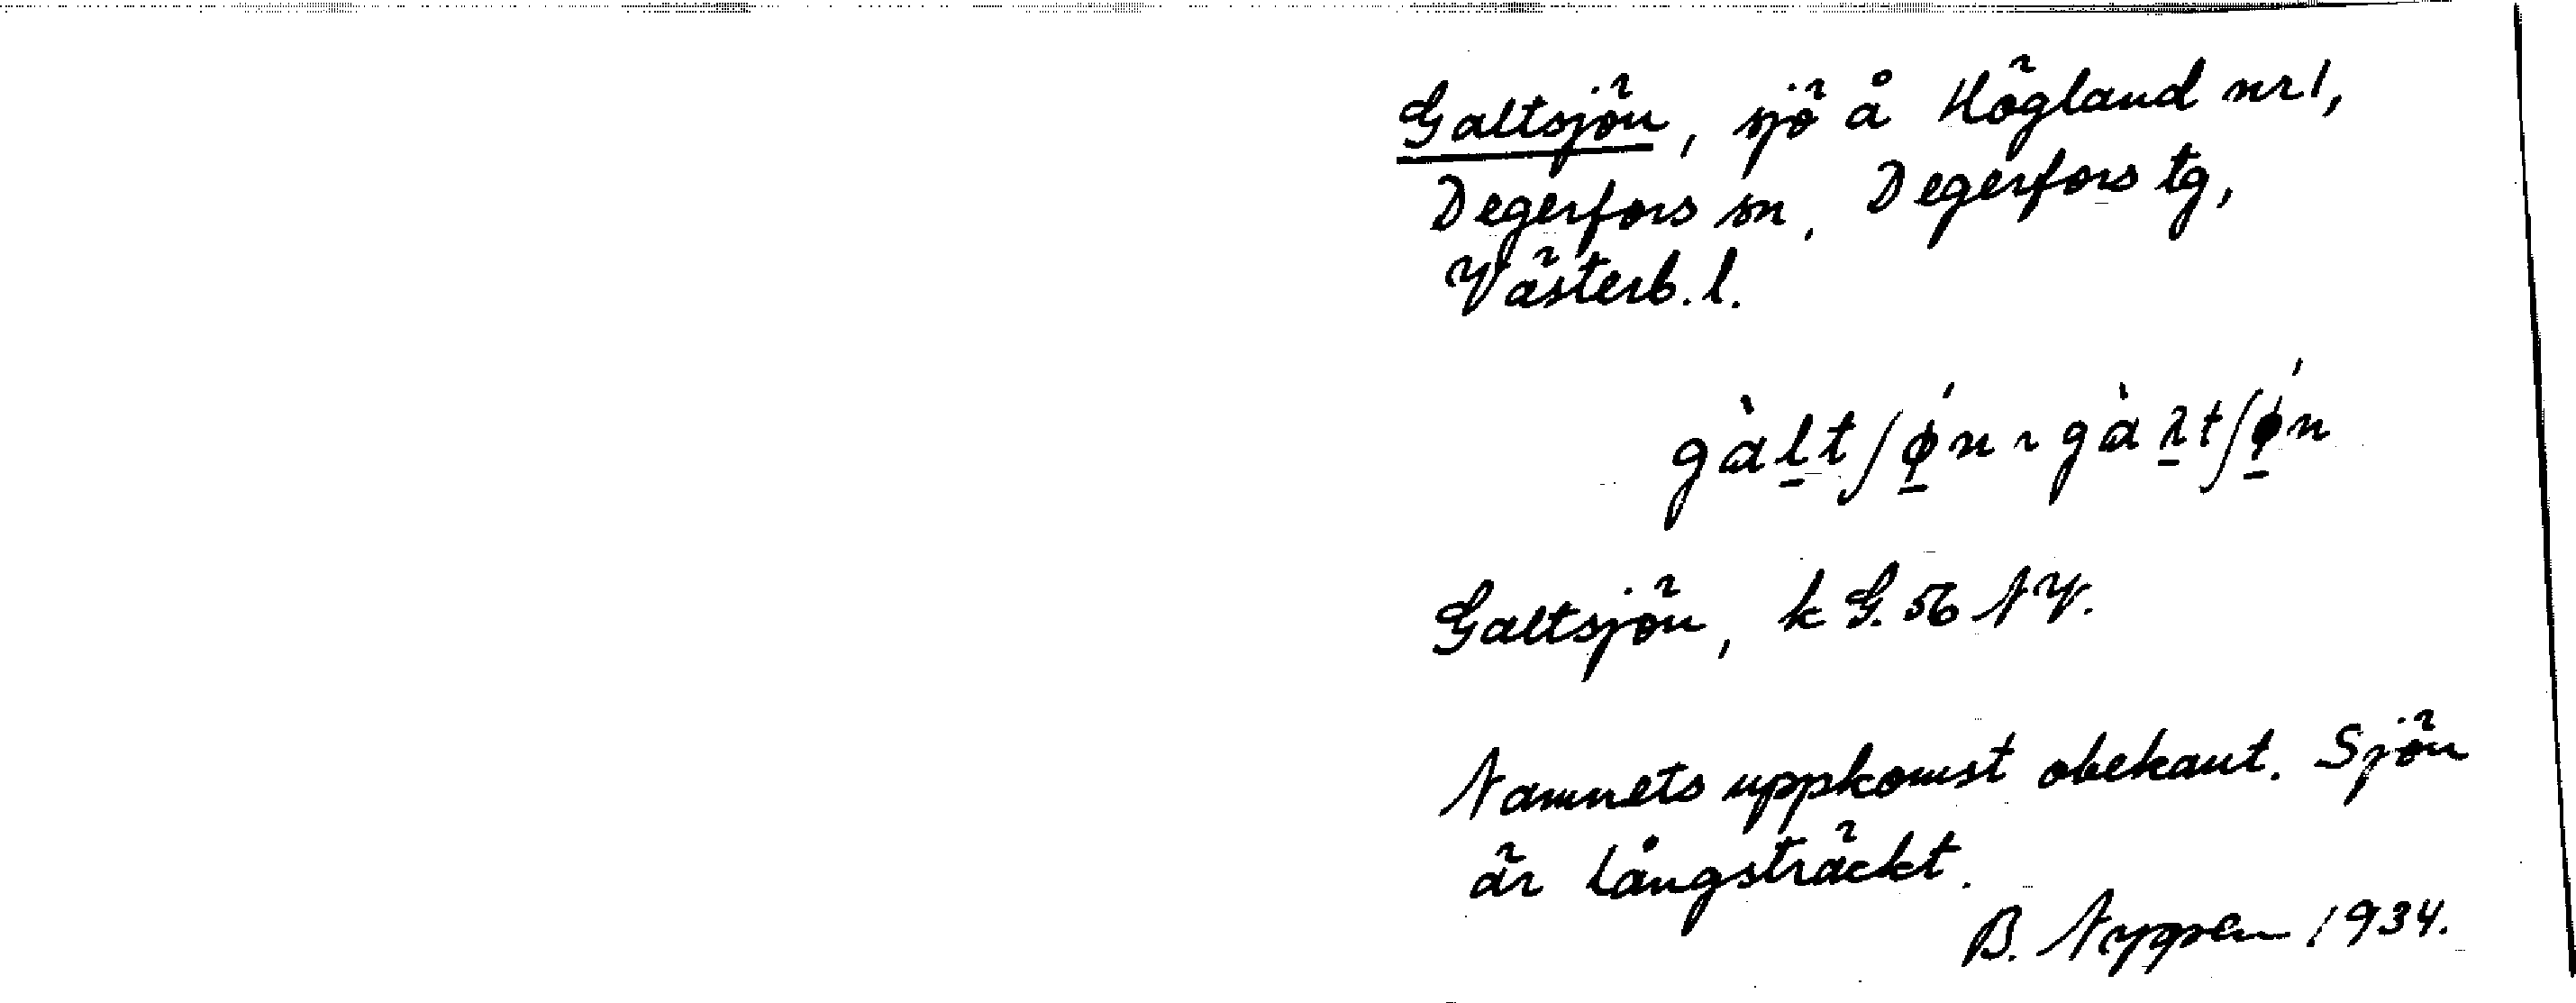 Galtsjön, sjö å Högland nr 1,
Degerfors sn, Degerfors tg,
Västerb. l.
gàl̲tʃǿ̲n ~ gàɽ̲tʃǿ̲n
Galtsjön, k G. 56 NV.
Namnets uppkomst obekant. Sjön
är långsträckt.
B. Nyggren 1934.